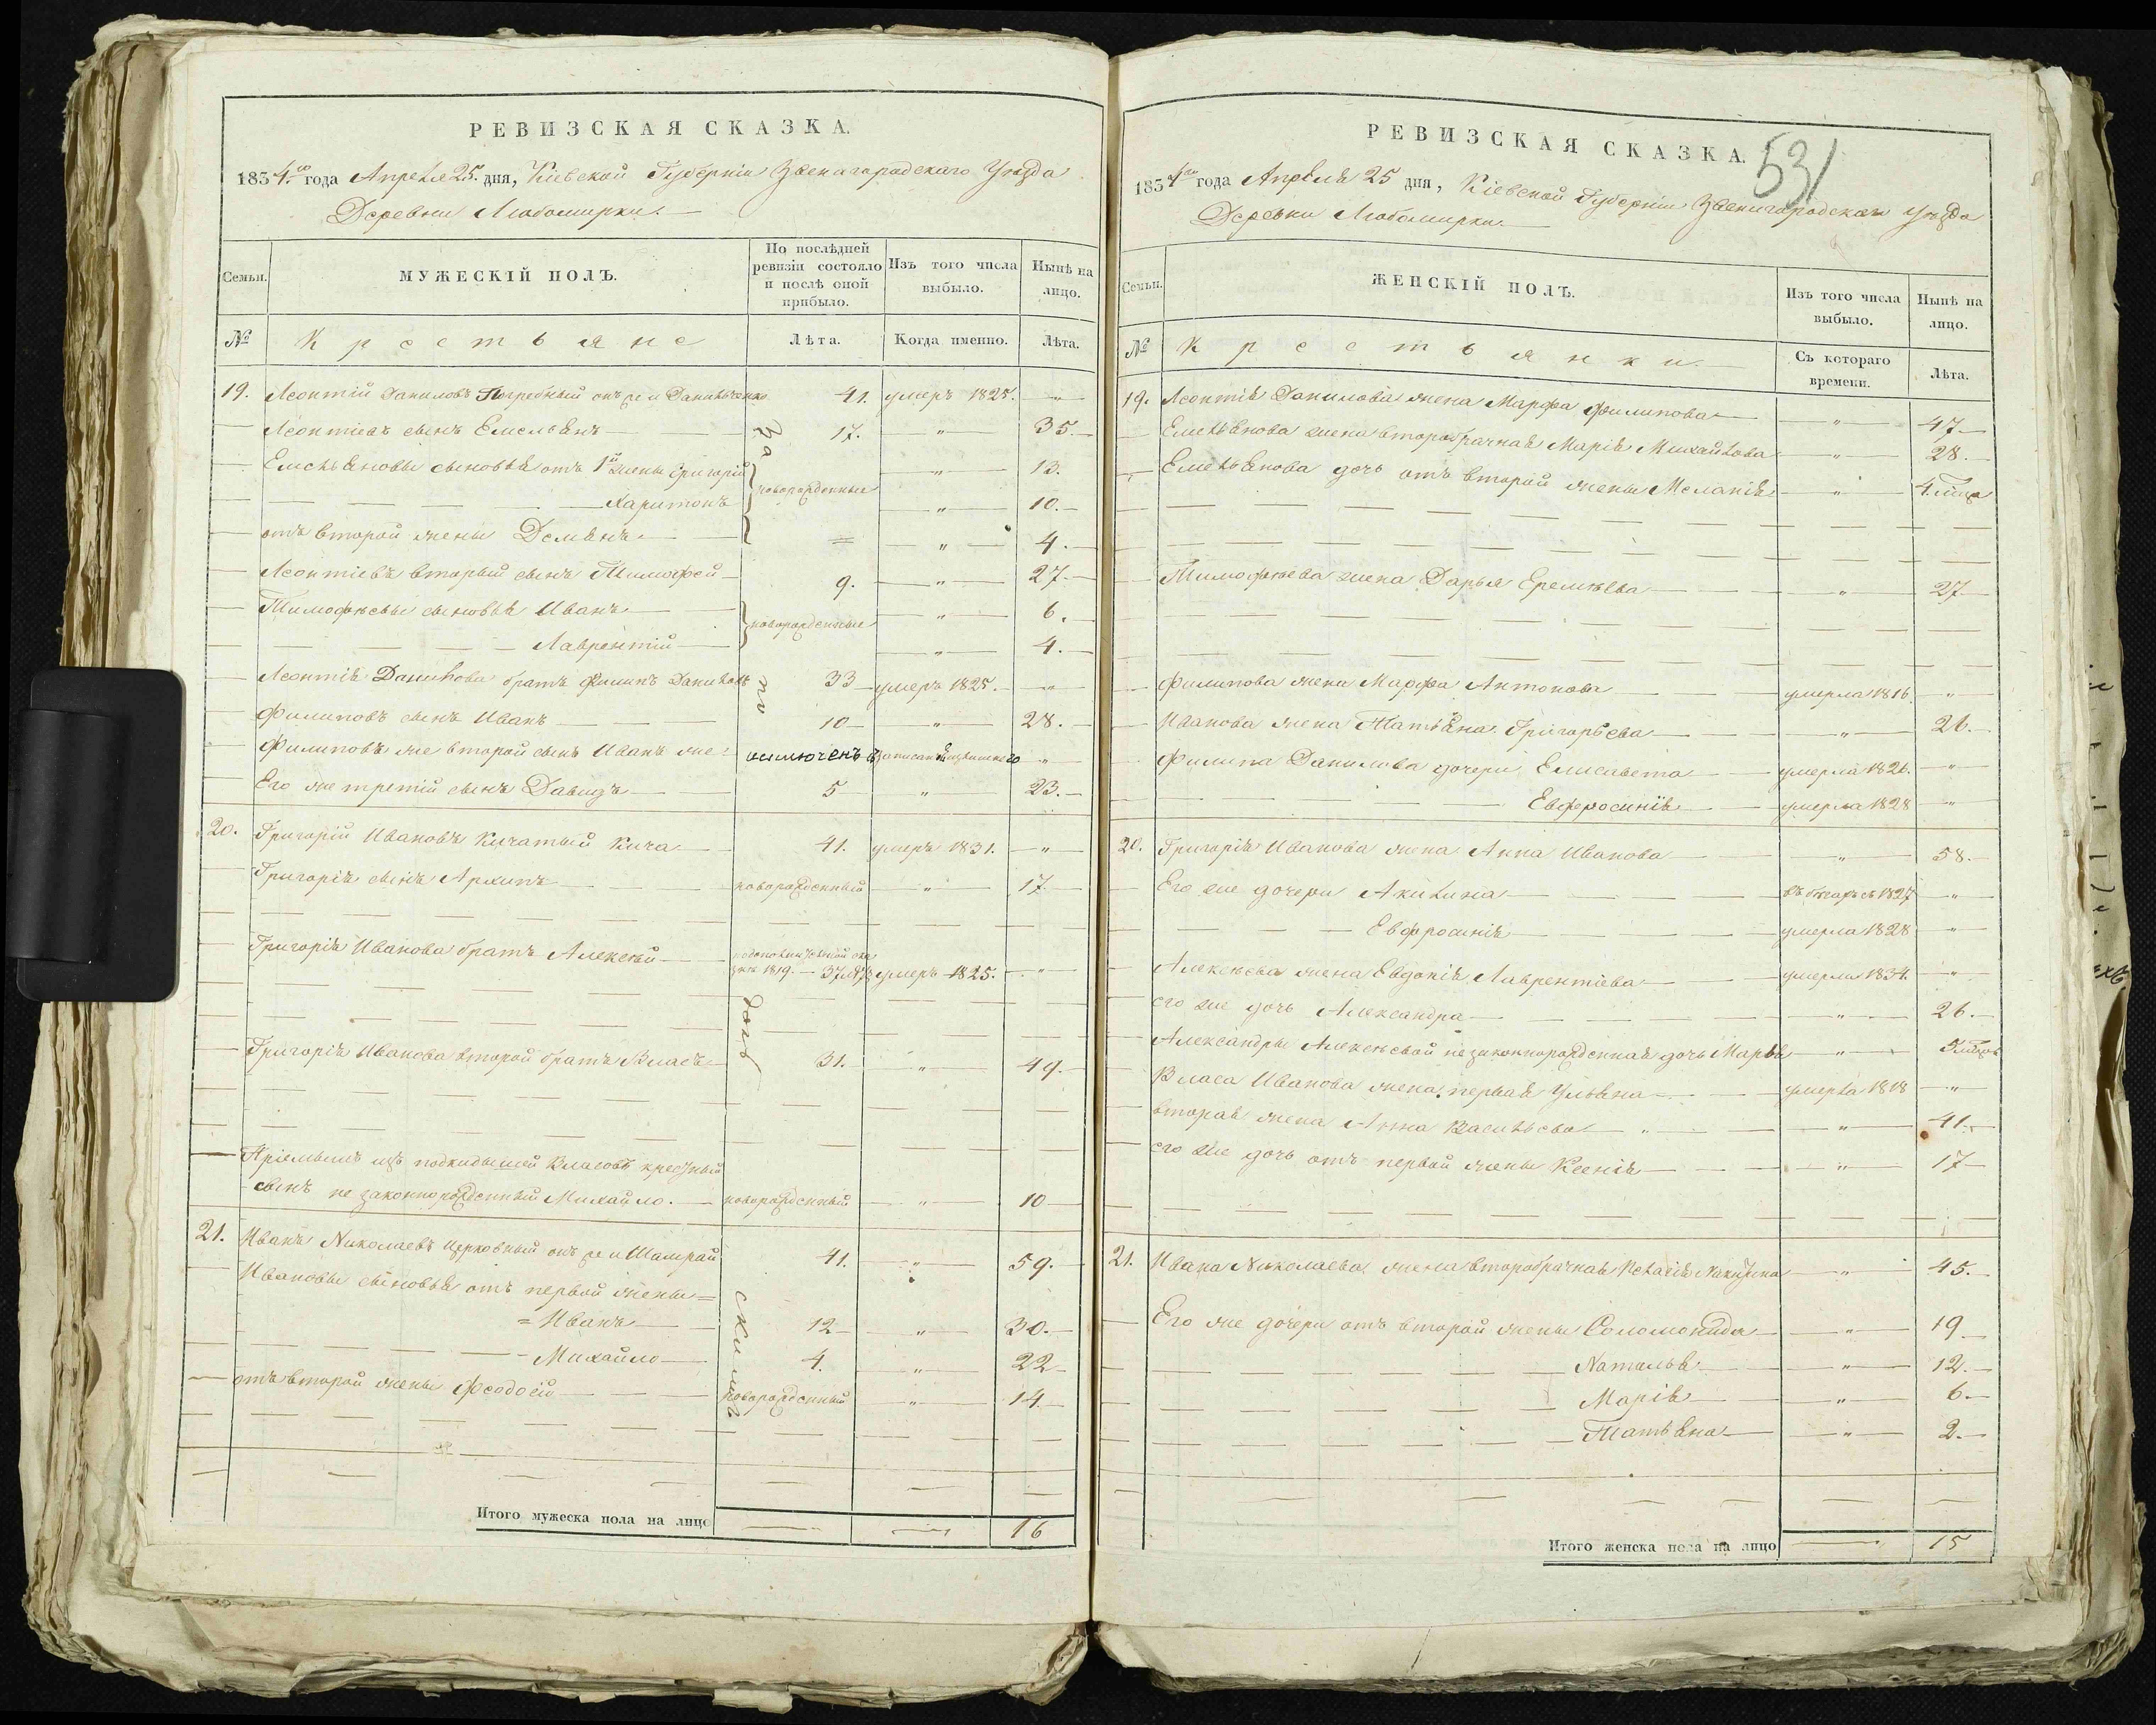 РЕВИЗСКАЯ СКАЗКА.
1834го года Апреля 25. дня, Кіевской Губерніи Звенигородскаго Уезда
Деревни Любомирки.
Семьи.
МУЖЕСКІЙ ПОЛЪ.
По послѣдней ревизіи состояло и послѣ оной прибыло.
Изъ того числа выбыло.
Нынѣ на лицо.
№
Крестьяне
Лѣта.
Когда именно.
Лѣта.
19. Леонтій Даниловъ Погребный онъ же и Данильченко 41. умеръ 1825. "
Леонтіевъ сынъ Емельянъ 17. " 35.
Емельяновы сыновья отъ 1й жены Григорій новорожденные " 13.
Харитонъ " 10.
отъ второй жены Демьянъ = " 4.
Леонтіевъ вторый сынъ Тимофей 9. " 27.
Тимофѣевы сыновья Иванъ новорожденные " 6.
Лаврентій " 4.
Леонтія Данилова братъ Филипъ Даниловъ 33 умеръ 1825. "
Филиповъ сынъ Иванъ 10 " 28.
Филиповъ же второй сынъ Иванъ же исключенъ "
Его же третій сынъ Давидъ 5 " 23.
20. Григорій Ивановъ Кичатый Кича 41. умеръ 1831. "
Григорія сынъ Архипъ новорожденный " 17
Григорія Иванова братъ Алексѣй
1819. 37 умеръ 1825. "
Григорія Иванова второй братъ Власъ 31. " 49.
Пріемышъ изъ подкидышей Власовъ крестный
сынъ не законнорожденный Михайло. новорожденный " 10
21. Иванъ Николаевъ Церковный онъ же и Шамрай 41. " 59.
Ивановы сыновья отъ первой жены=
=Иванъ 12 " 30.
Михайло 4. " 22
отъ второй жены Феодосій новорожденный " 14
Итого мужеска пола на лицо 16
531
РЕВИЗСКАЯ СКАЗКА.
1834го года Апрѣля 25 дня, Кіевской Губерніи Звенигородскаго Уѣзда
Деревни Любомирки.
Семьи.
ЖЕНСКІЙ ПОЛЪ.
Изъ того числа выбыло.
Нынѣ на лицо.
№
Крестьянки.
Съ котораго времени.
Лѣта.
19. Леонтія Данилова жена Марфа Филипова " 47
Емельянова жена второбрачная Марія Михайлова " 28.
Емельянова дочь отъ второй жены Меланія " 4
Тимофѣева жена Дарья Еремѣева " 27
Филипова жена Марфа Антонова умерла 1816 "
Иванова жена Татьяна Григорьева " 26.
Филипа Данилова дочери Елисавета умерла 1826. "
Евфросинія умерла 1828 "
20. Григорія Иванова жена Анна Иванова " 58.
Его же дочери Акилина въ бѣгахъ съ 1827 "
Евфросинія умерла 1828 "
Алексѣева жена Евдокія Лаврентіева умерла 1834. "
его же дочь Александра " 26.
Александры Алексѣевой незаконнорожденная дочь Марья " 5
Власа Иванова жена первая Ульяна умерла 1818 "
вторая жена Анна Васильева " 41.
его же дочь отъ первой жены Ксенія " 17
21. Ивана Николаева жена второбрачная Пелагія " 45.
Его же дочери отъ второй жены Соломонида " 19
Наталья " 12.
Марія " 6.
Татьяна " 2.
Итого женска пола на лицо 15